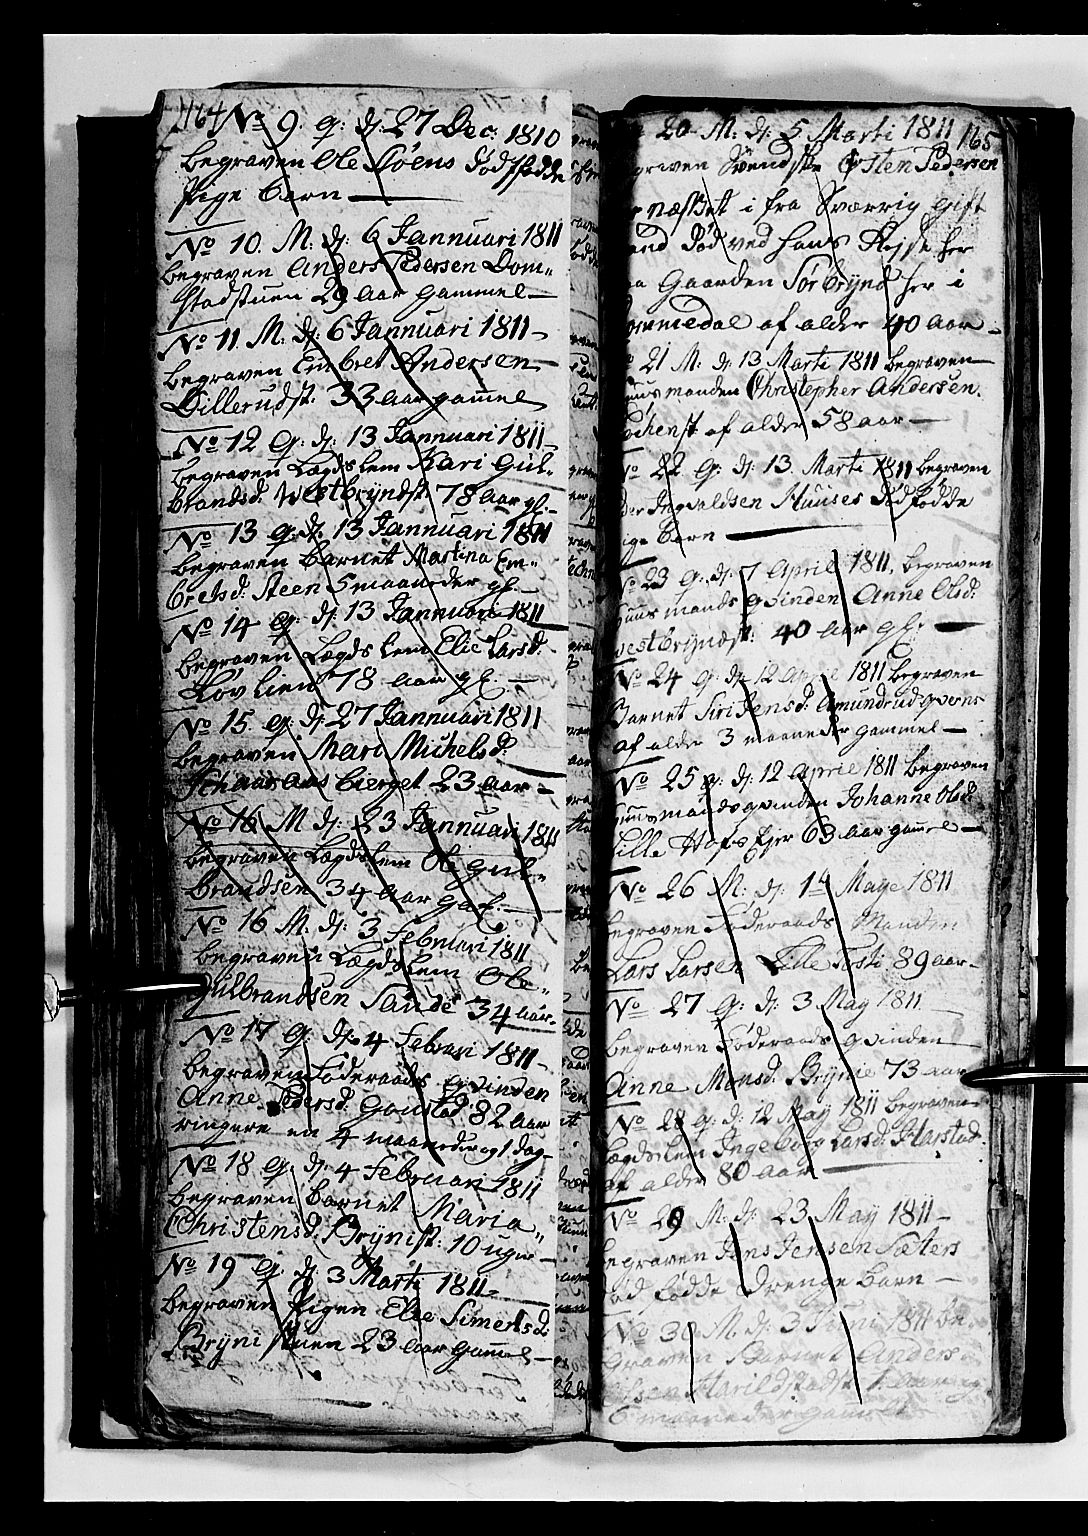 164 No 9. q: dj 27 Dec: 1810
begraven Ole Moens dødfødde
Pige barn
No 10. M: dj: 6 Jannuari 1811
begraven Anders Pedersen Dom-
stadstuen 29 aar gammel
No 11 M: dj: 6 Jannuari 1811
begraven Embret Andersen
Dillerudst: 33 aar gamel
No 12 q: dj: 13 Jannuari 1811
begraven Lægdslem Kari Gul-
brandsd: Westbryndst: 78 aar gl:
No 13 q: dj: 13 Jannuari 1811
begraven barnet Martina Em-
bretsd: Steen 5 maaneder gl:
No 14 q: dj: 13 Jannuari 1811
begraven Lægdslem Elie Larsd:
Løvlien 78 aar gl:
No 15 q: dj: 27 Jannuari 1811
begraven Mari Michelsd:
Schaaraasberget 23 aar
No 16 M dj: 23 Jannuari 1811
begraven Lægdslem Ole Gul-
brandsen 34 aar gal:
No 16 M: dj: 3 Februari 1811
begraven Lægdslem Ole
Gulbrandsen Sande 34 aar
No 17 q: dj: 4 Februari 1811
begraven Føderaads qvinden
Anne Pedersd: Gonstad: 82 aar
ringere en 4 maaneder og 1 dag
No 18 q: dj: 4 Februari 1811
begraven barnet Maria
Christensd: Brynist: 10 uger
No 19 q: dj: 3 Marti 1811
begraven Pigen Elie Simensd:
Bryni stuen 23 aar gamel
20 M: dj: 5 Marti 1811 165
graven Svendske Østen Pedersen
næsset i fra Sværrig Gift
and Død ved hans Rejse her
a Gaarden Sørbrynd her i
ommedal af alder 40 aar
21 M: dj: 13 Marti 1811 begraven
uusmanden Christopher Andersen
af alder 58 aar
No 22 q: dj: 13. Marti 1811 begraven
der Ingvaldsen Huuses dødfødde
ige barn
No 23 q: dj: 7 April 1811, begraven
huusmands qvinden Anne Olsd:
westbryndst: 40 aar gl:
No 24 q: dj: 12 April 1811 begraven
Barnet Siri Jensd: Amundrudqverns
af alder 3 maaneder gammel
No 25 q: dj: 12 April 1811 begraven
huusmandsqvinden Johanne Olsd:
Lille Hofs Ejer 63 aar gamel
No 26 M: dj: 14 Maye 1811
begraven Føderaads Manden
Lars Larsen Lille Tosti 89 aar
No 27 q: dj: 3 May 1811
begraven Føderaads qvinden
Anne Monsd: Brynie 73 aar
No 28 q: d: 12 May 1811 begraven
Lægdslem Ingeborg Larsd: Harstad:
af alder 80 aar
No 29 M: dj: 23 May 1811
begraven Jens Jensen Sæters
død fødde drenge barn
No 30 M: dj: 3 Juni 1811 be-
graven Barnet Anders
Olsen Harildstadst: 1 aar og
6 maaneder gammel